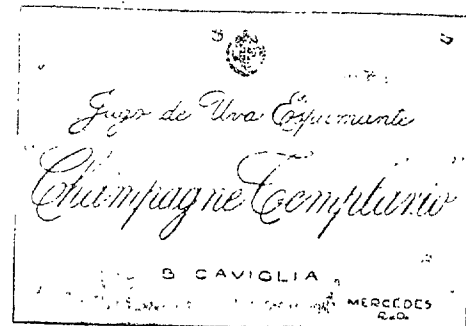 Jugo de Uva Espumante
Champagne Templario
B CAVIGLIA
MERCEDES
R.O.